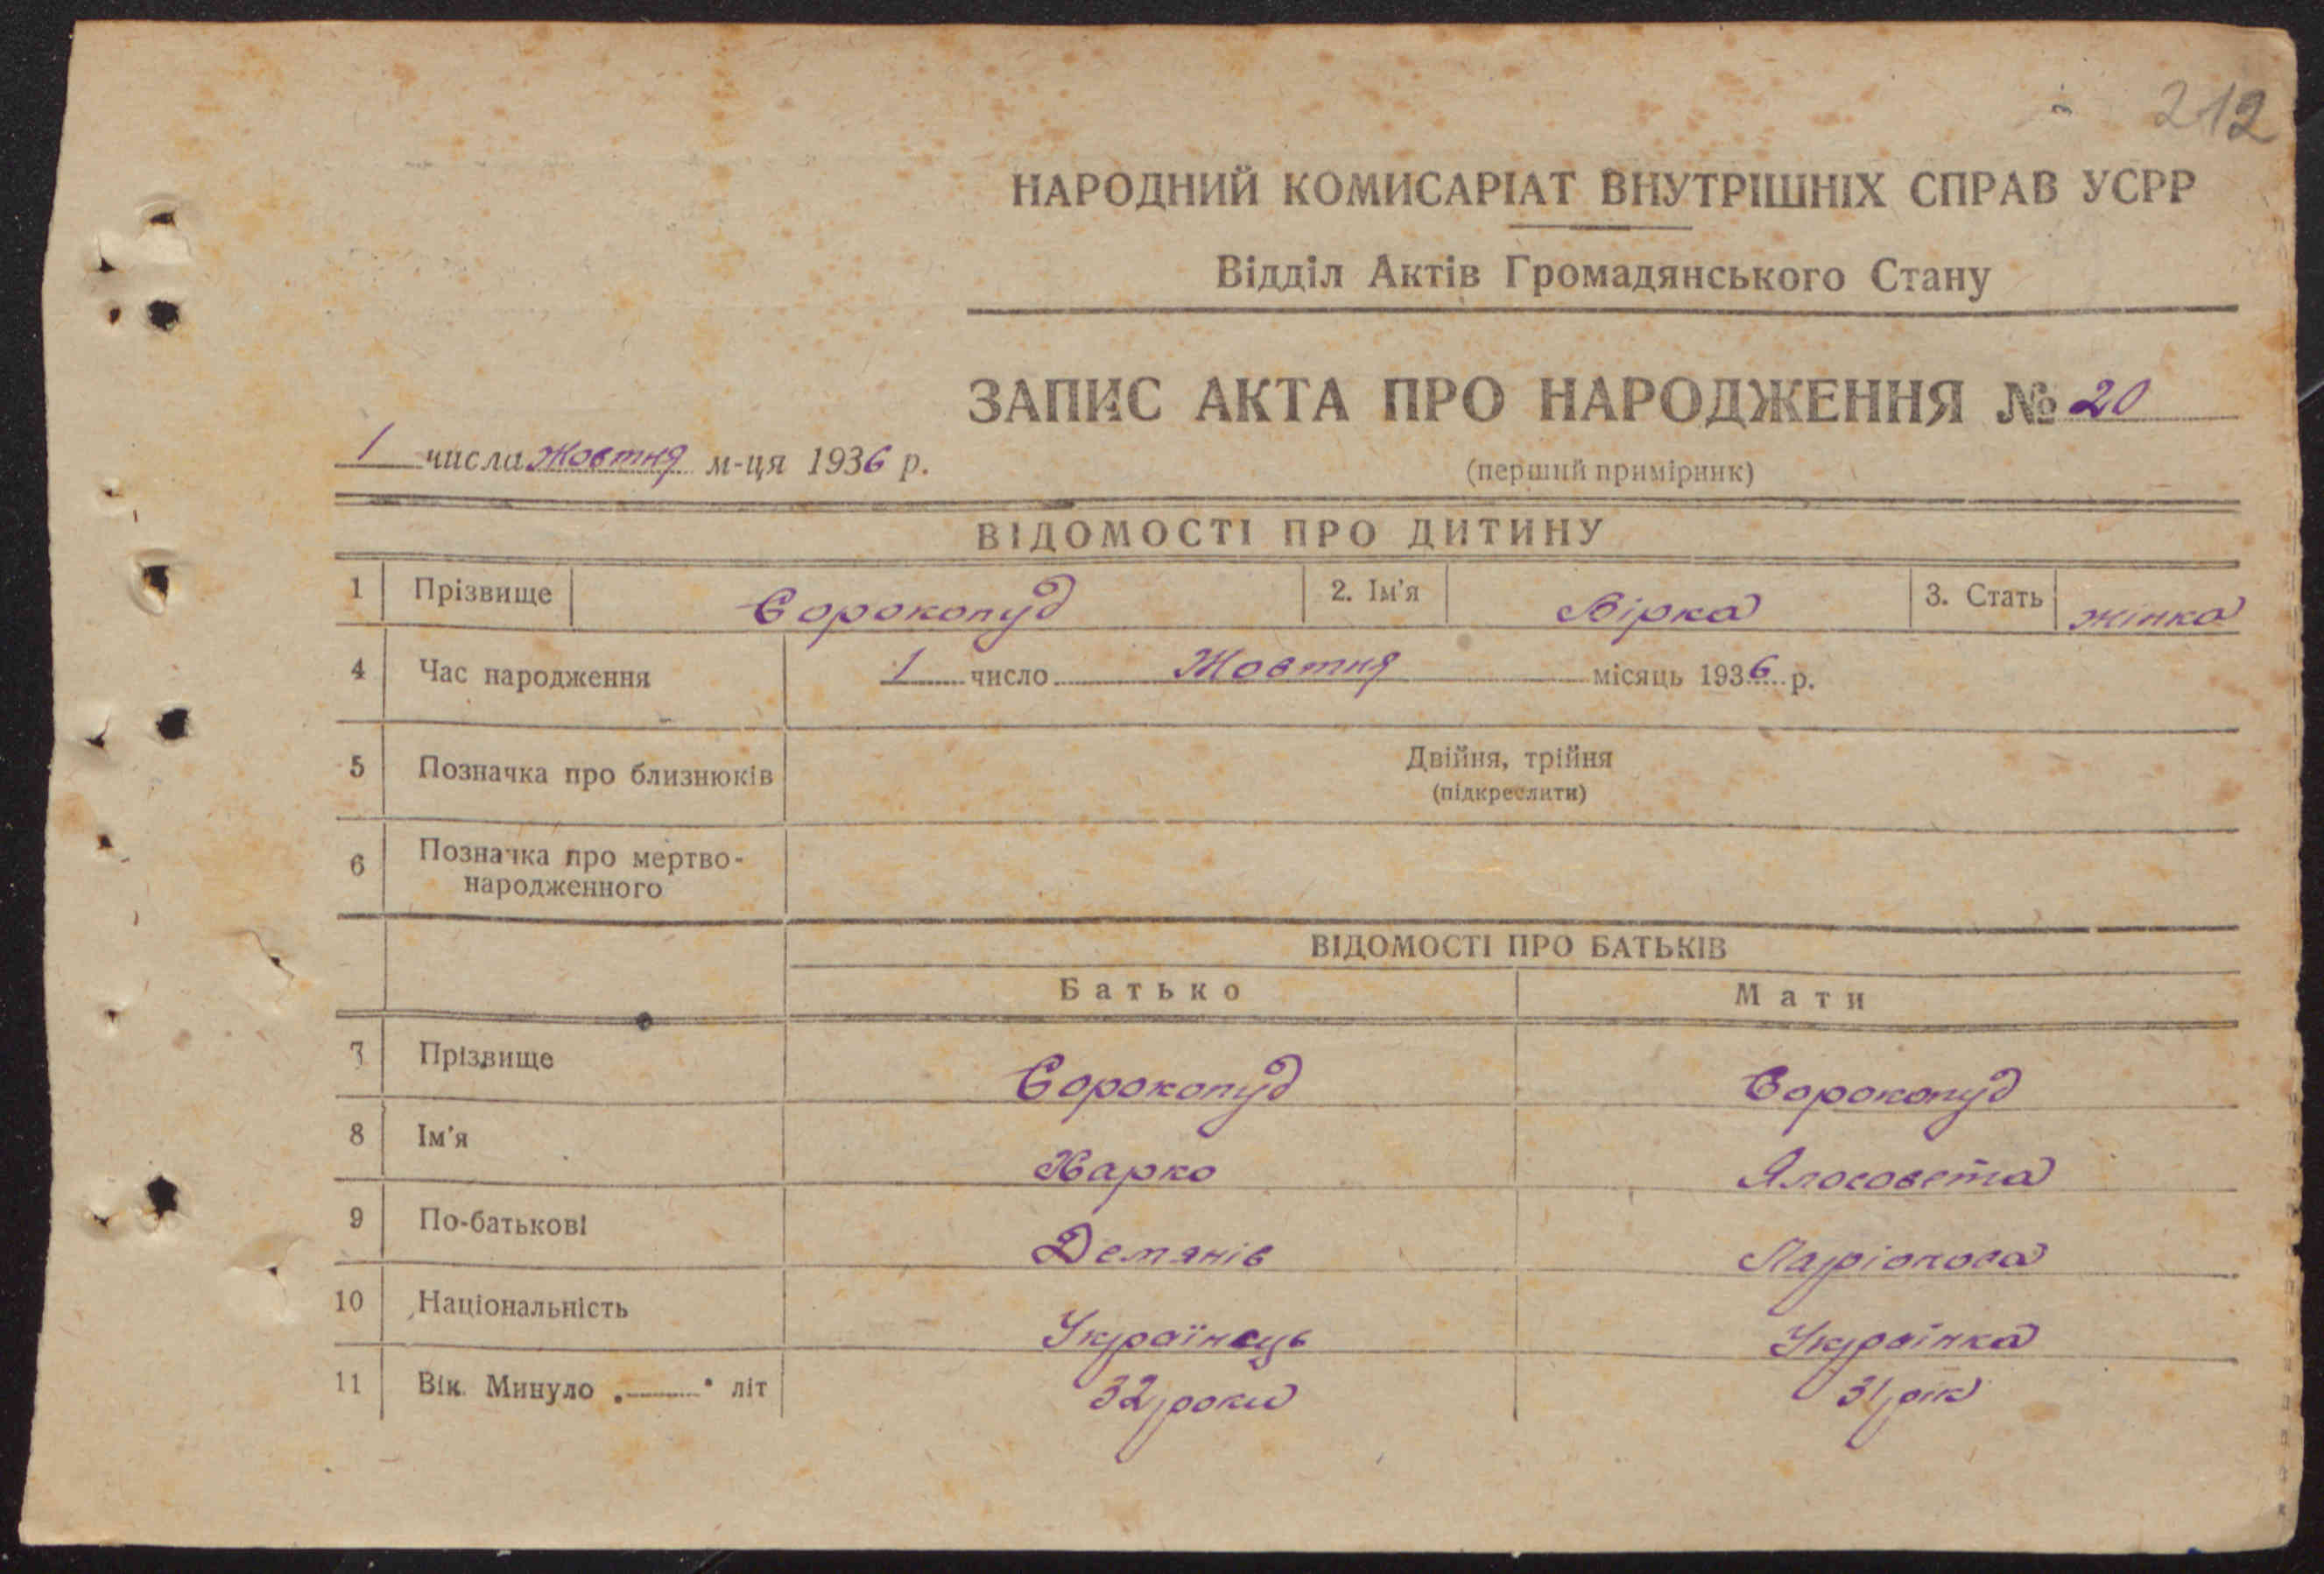 212
НАРОДНИЙ КОМИСАРІАТ ВНУТРІШНІХ СПРАВ УСРР
Відділ Актів Громадянського Стану
ЗАПИС АКТА ПРО НАРОДЖЕННЯ № 20
1 числа жовтня м-ця 1936 р.
(перший примірник)
ВІДОМОСТІ ПРО ДИТИНУ
1 Прізвище Сорокопуд 2. Ім'я Вірка 3. Стать жінка
4 Час народження 1 число Жовтня місяць 1936 р.
5 Позначка про близнюків Двійня, трійня
(підкреслити)
6 Позначка про мертво-
народженного
ВІДОМОСТІ ПРО БАТЬКІВ
Батько Мати
7 Прізвище Сорокопуд Сорокопуд
8 Ім'я Харко Ялосовета
9 По-батькові Демянів Ларіонова
10 Національність Українець Українка
11 Вік. Минуло літ 32 роки 31 рік